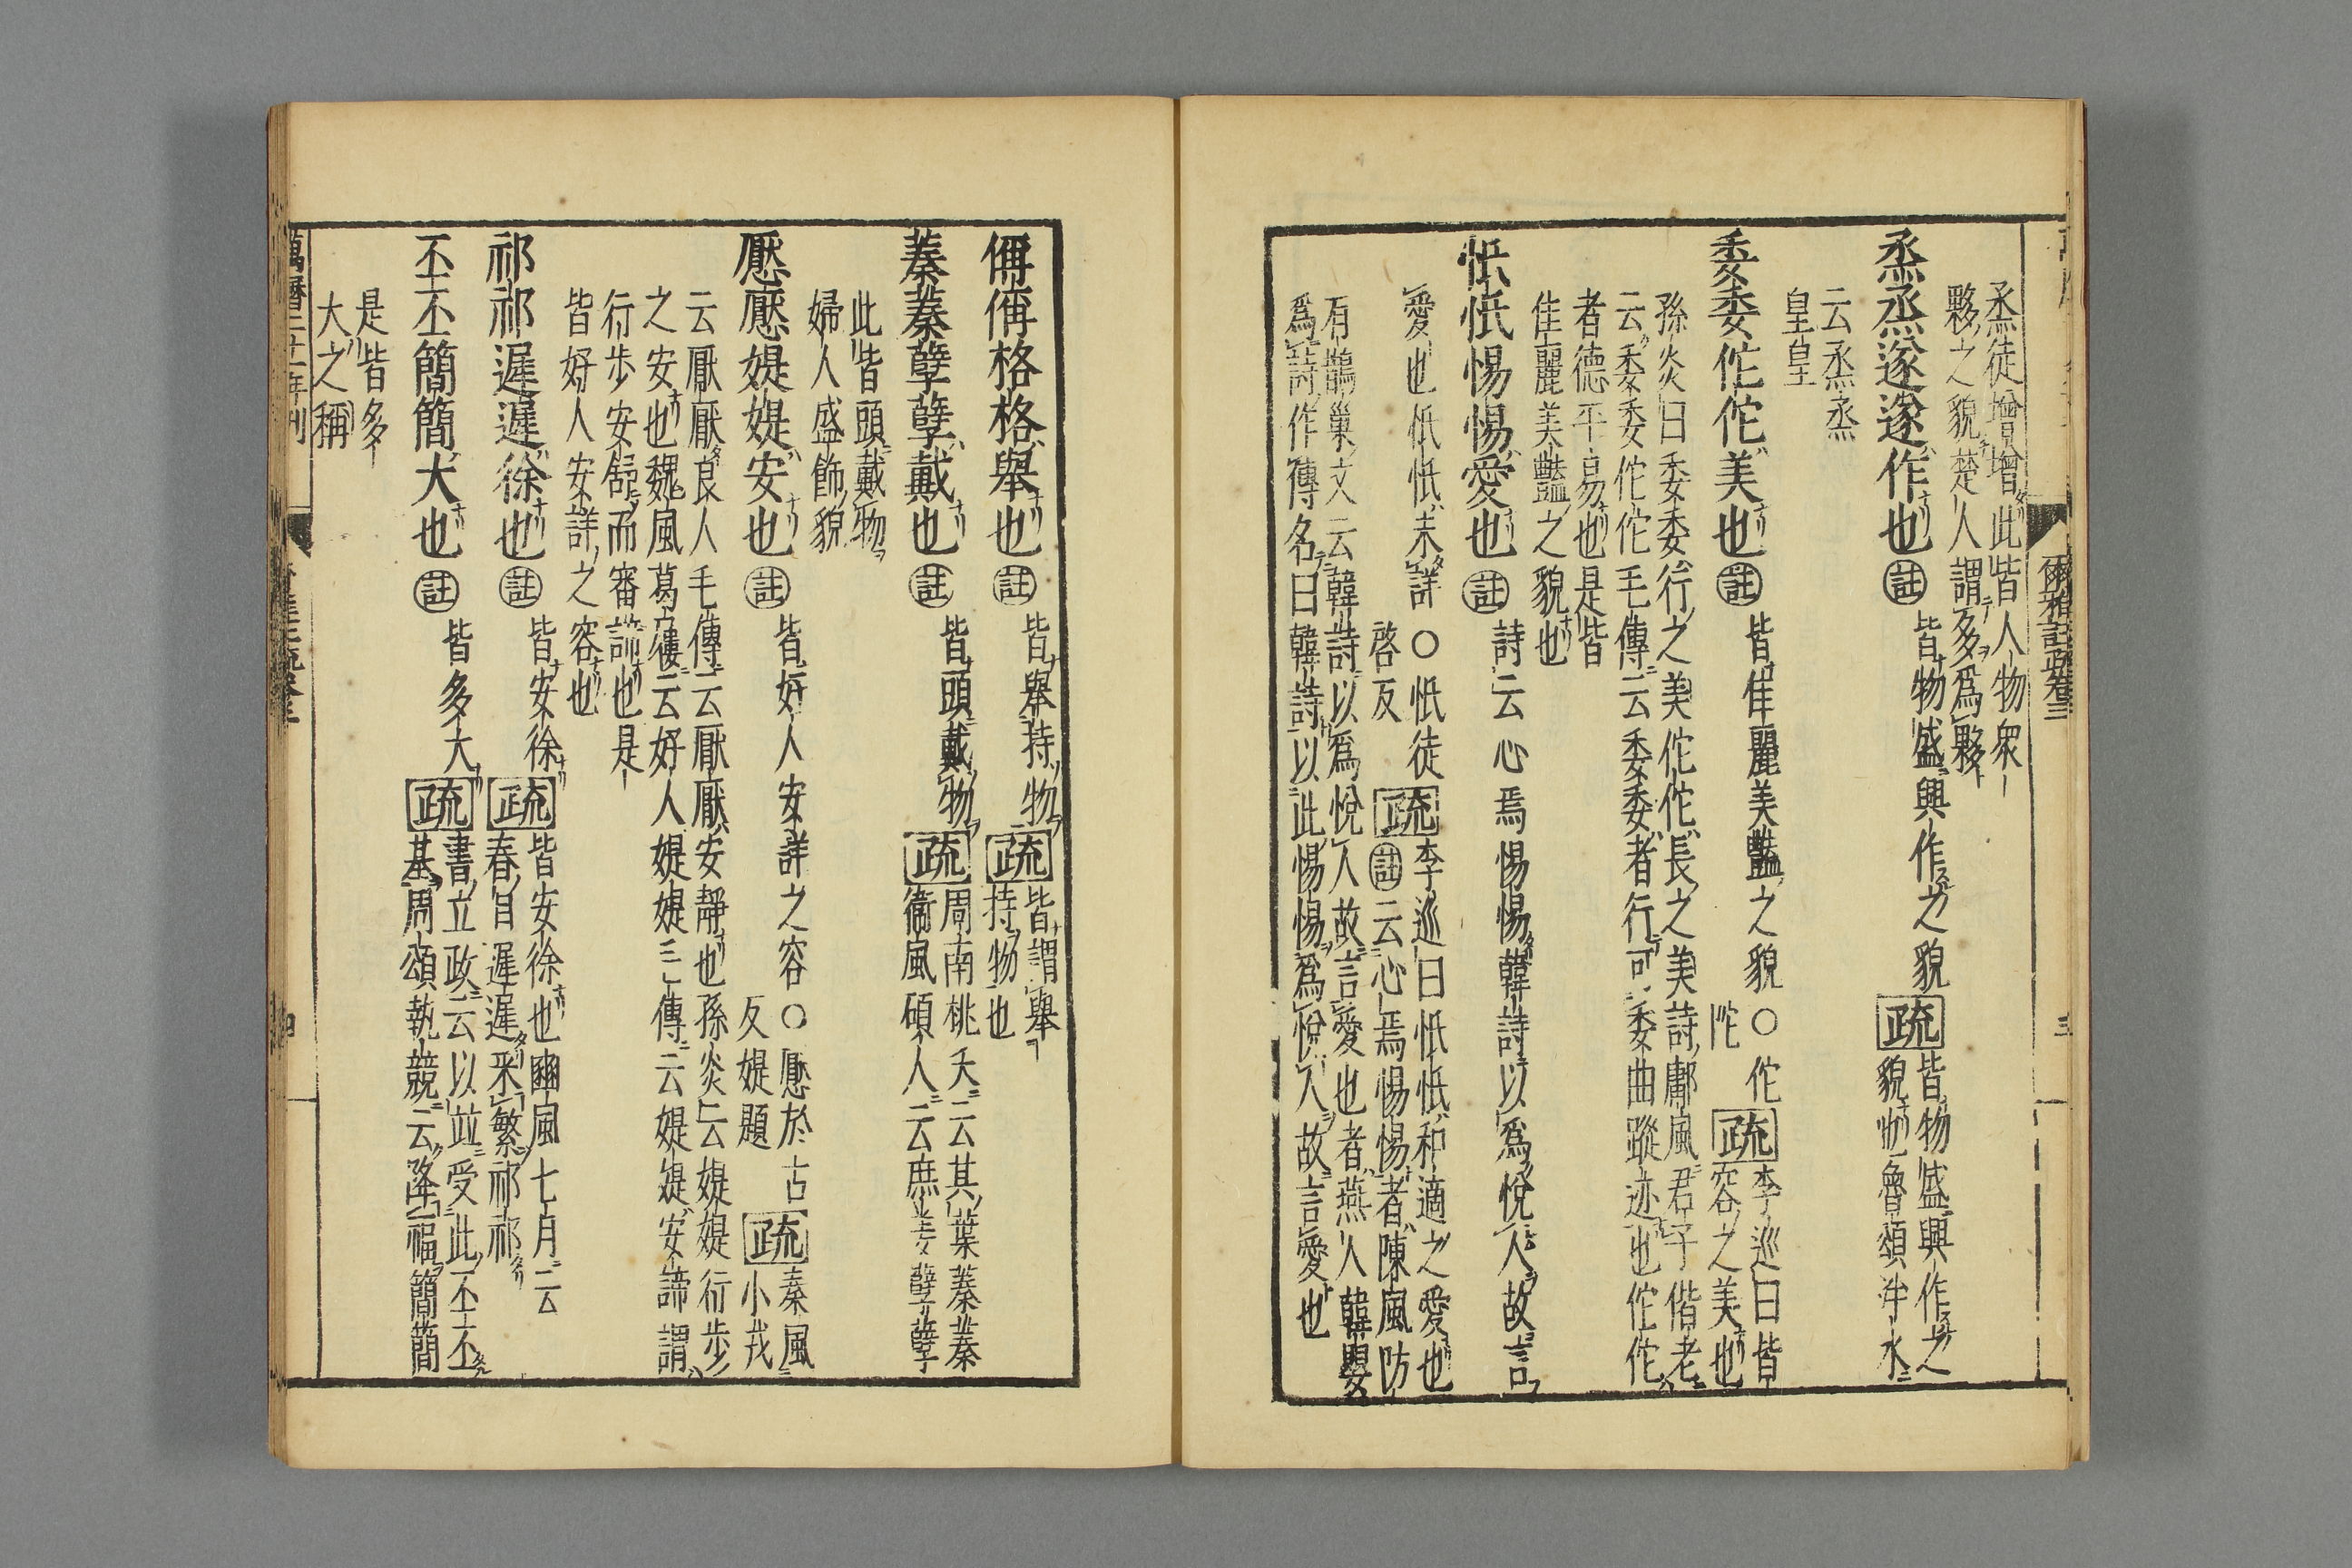 烝徒增增此皆人物衆
夥之貌楚人謂多爲夥
烝烝遂遂作也註皆物盛興作之貌疏皆物盛興作之
貌也魯頌泮水
云烝烝
皇皇
委委佗佗美也註皆佳麗美豔之貌○佗陀疏李巡曰皆
容之美也
孫炎曰委委行之美佗佗長之美詩鄘風君子偕老
云委委佗佗毛傳云委委者行可委曲蹤迹也佗佗
者德平易也是皆
佳麗美豔之貌也
忯忯惕惕愛也註詩云心焉惕惕韓詩以爲悅人故言
愛也忯忯未詳○忯徒啓反疏李巡曰忯忯和適之愛也
註云心焉惕惕者陳風防
有鵲巢文云韓詩以爲悅人故言愛也者燕人韓嬰
爲詩作傳名曰韓詩以此惕惕爲悅人故言愛也
爾雅註疏卷三
三
偁偁格格舉也註皆舉持物疏皆謂舉
持物也
蓁蓁孽孽戴也註皆頭戴物疏周南桃夭云其葉蓁蓁
衞風碩人云庶姜孽孽
此皆頭戴物
婦人盛飾貌
懕懕媞媞安也註皆好人安詳之容○懕於占反媞題疏秦風
小戎
云厭厭良人毛傳云厭厭安靜也孫炎云媞媞行步
之安也魏風葛屨云好人媞媞毛傳云媞媞安諦謂
行步安舒而審諦也是
皆好人安詳之容也
祁祁遲遲徐也註皆安徐疏皆安徐也豳風七月云
春日遲遲采蘩祁祁
丕丕簡簡大也註皆多大疏書立政云以並受此丕丕
基周頌執競云降福簡簡
是皆多
大之稱
萬曆二十一年刊